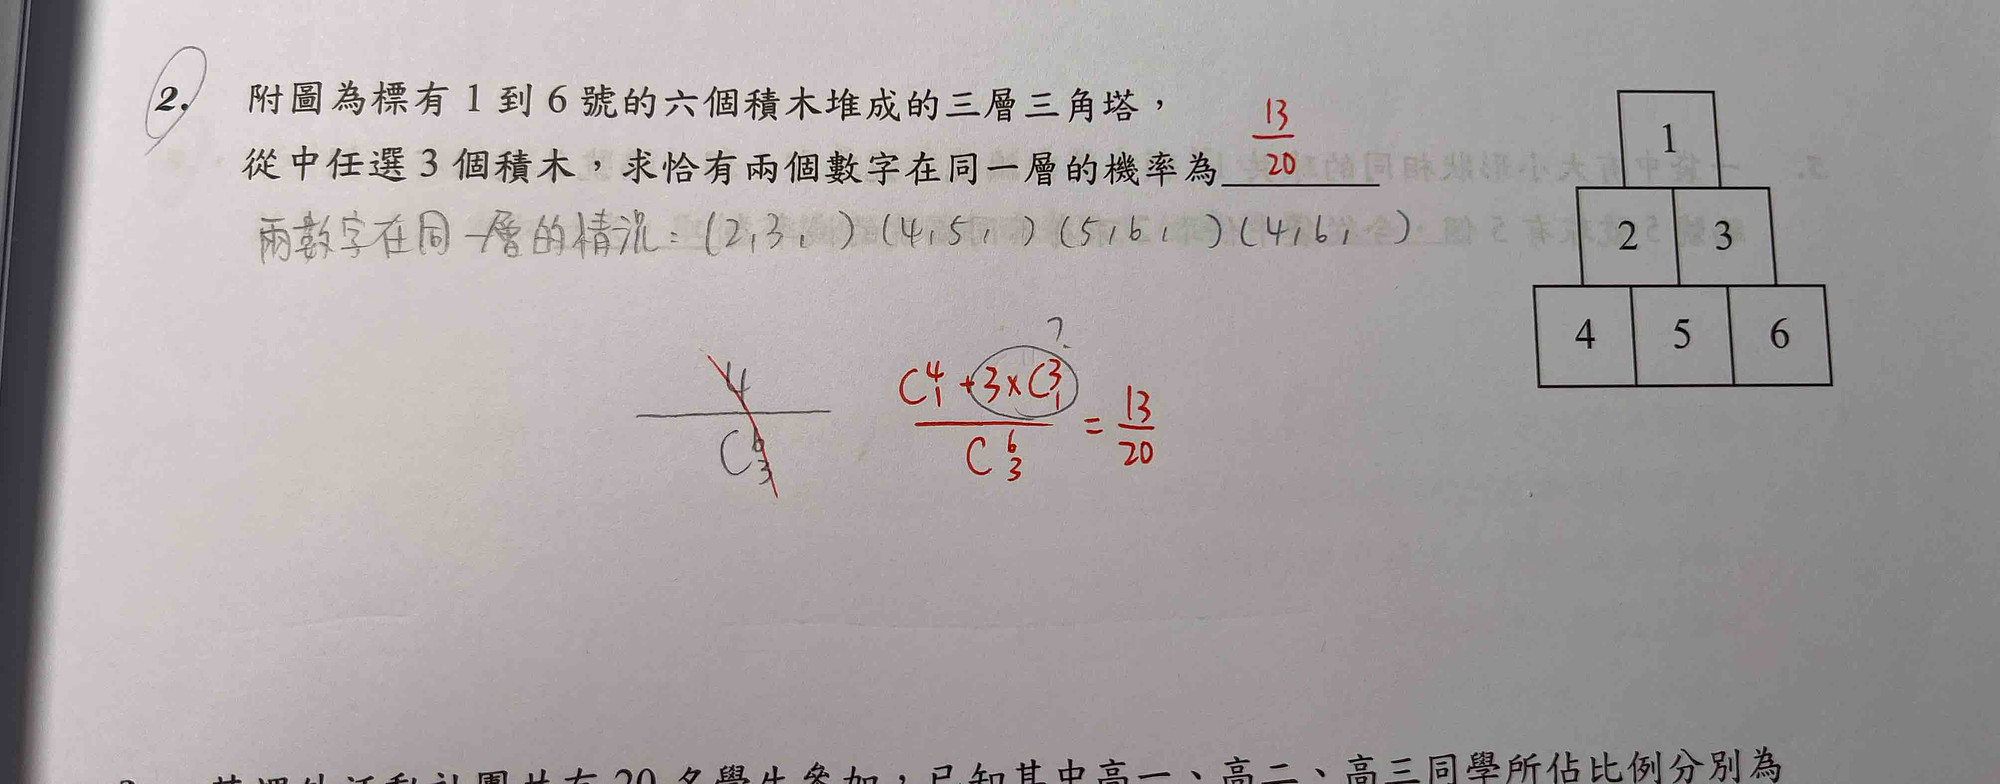 2. 附圖為標有 1 到 6 號的六個積木堆成的三層三角塔，
從中任選 3 個積木，求恰有兩個數字在同一層的機率為 13/20
兩數字在同一層的情況：(2,3, ) (4,5, ) (5,6, ) (4,6, )
1
2 3
4 5 6
?
4/C⁶₃ (C⁴₁+3×C³₁)/C⁶₃ = 13/20
名學生參加，已知其中高一、高二、高三同學所佔比例分別為